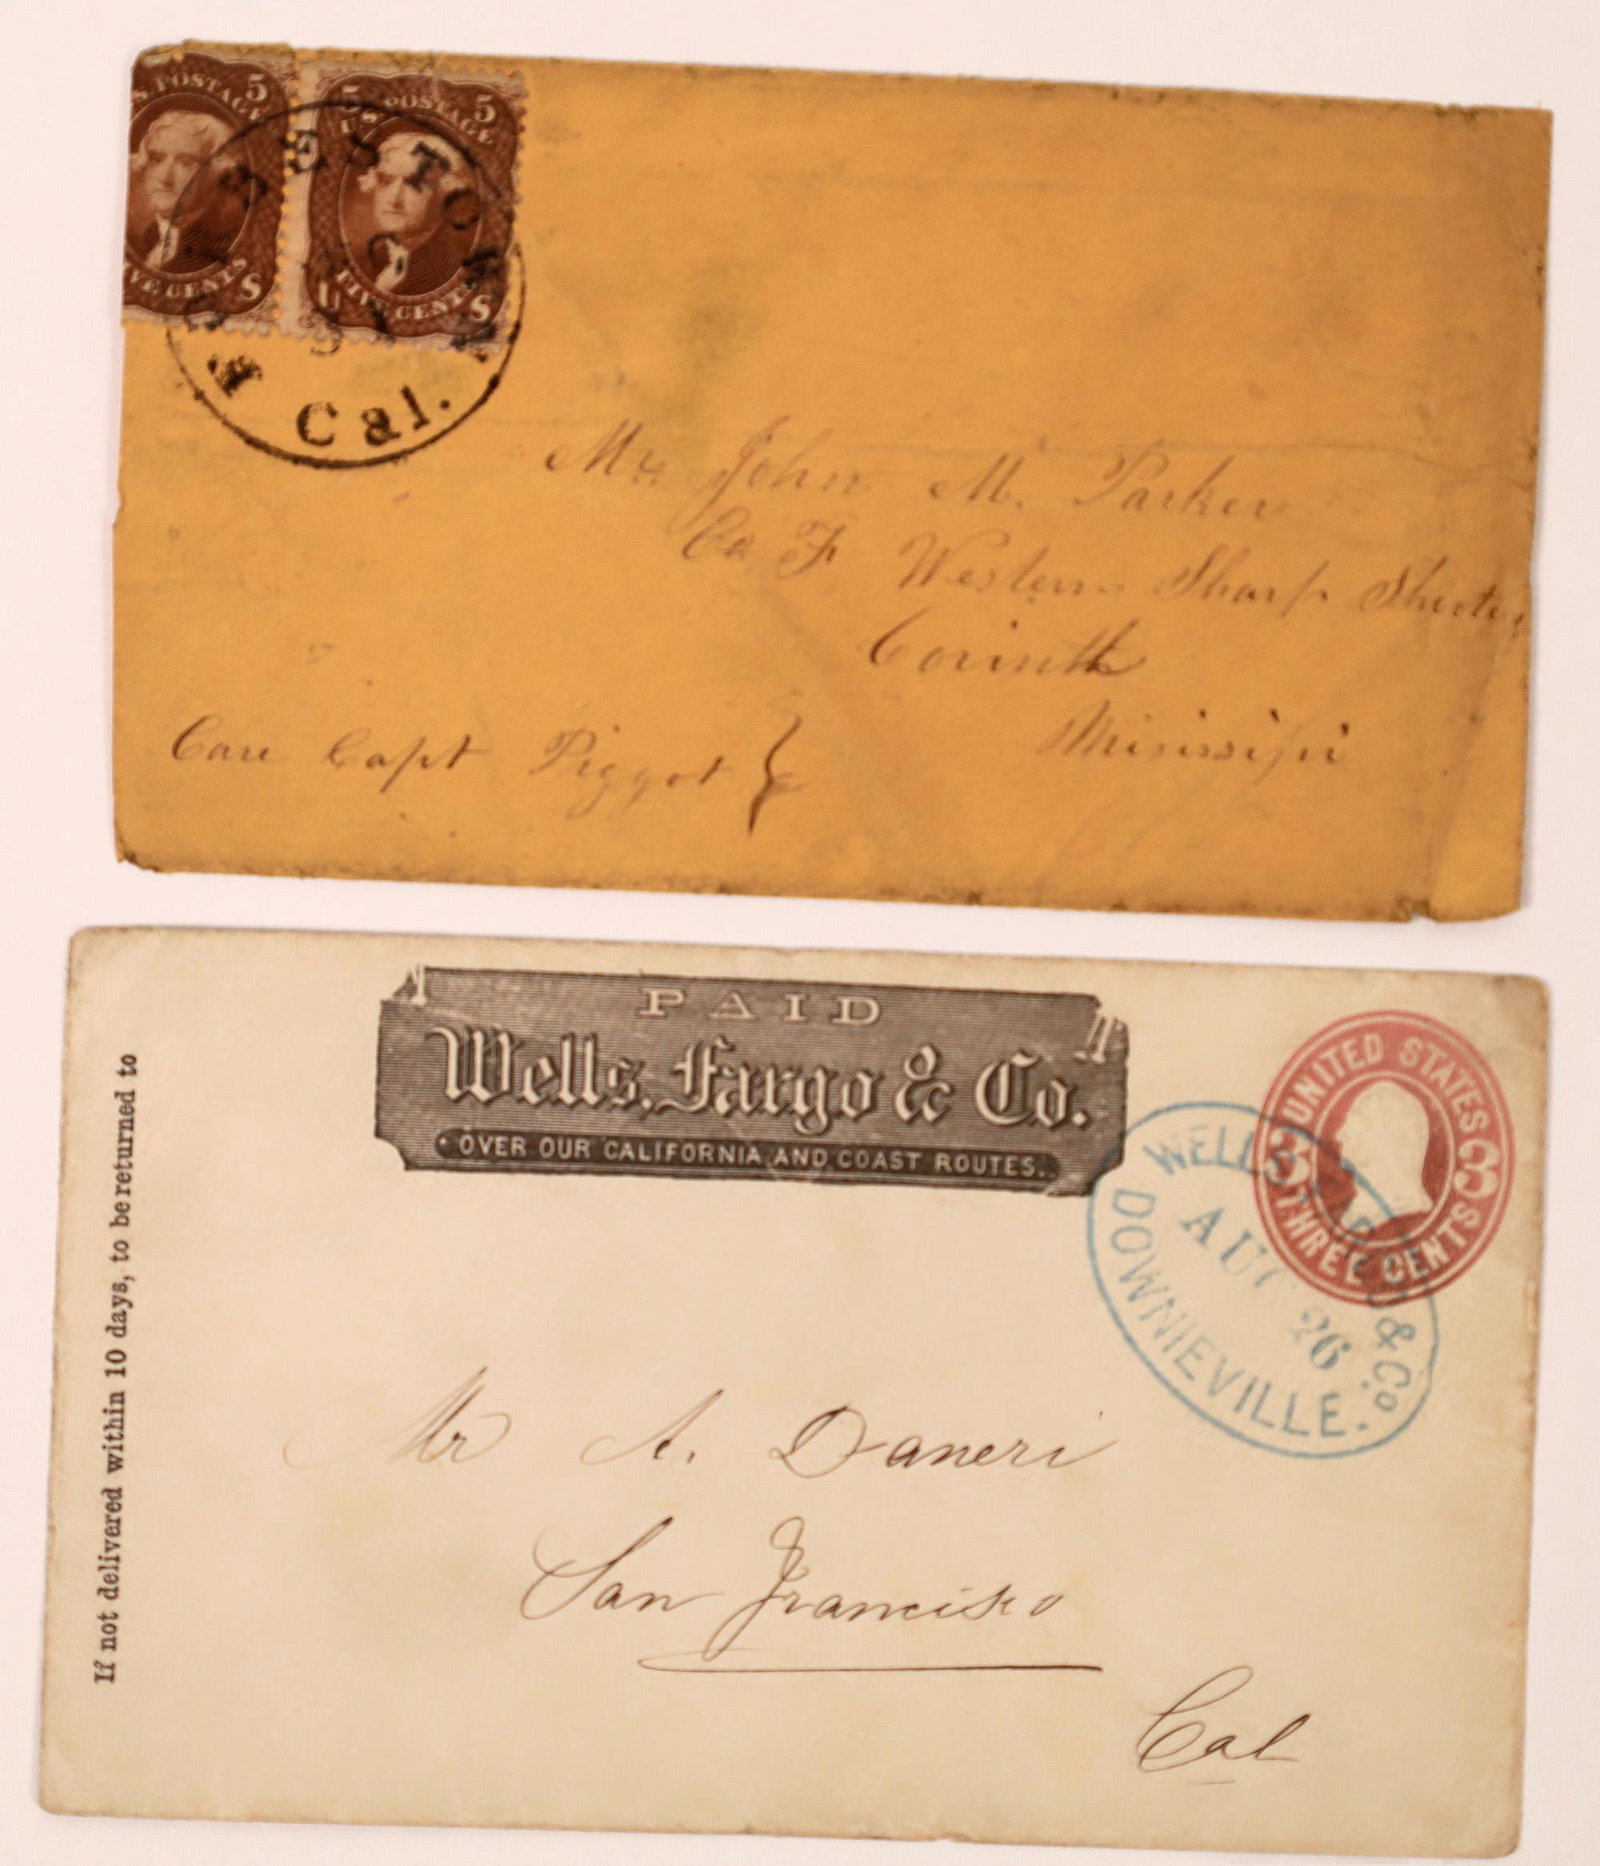 S. POSTAGE 5
VE CENTS S
5 U.S. POSTAGE 5
U FIVE CENTS S
Cal.
Mr. John M. Parker
Co F Western Sharp Shooters
Corinth
Misissipi
Care Capt Piggot
If not delivered within 10 days, to be returned to
PAID
Wells, Fargo & Co.
OVER OUR CALIFORNIA AND COAST ROUTES.
UNITED STATES
3 3
THREE CENTS
WELLS, FARGO & Co.
AUG 26
DOWNIEVILLE.
Mr A. Daneri
San Francisco
Cal